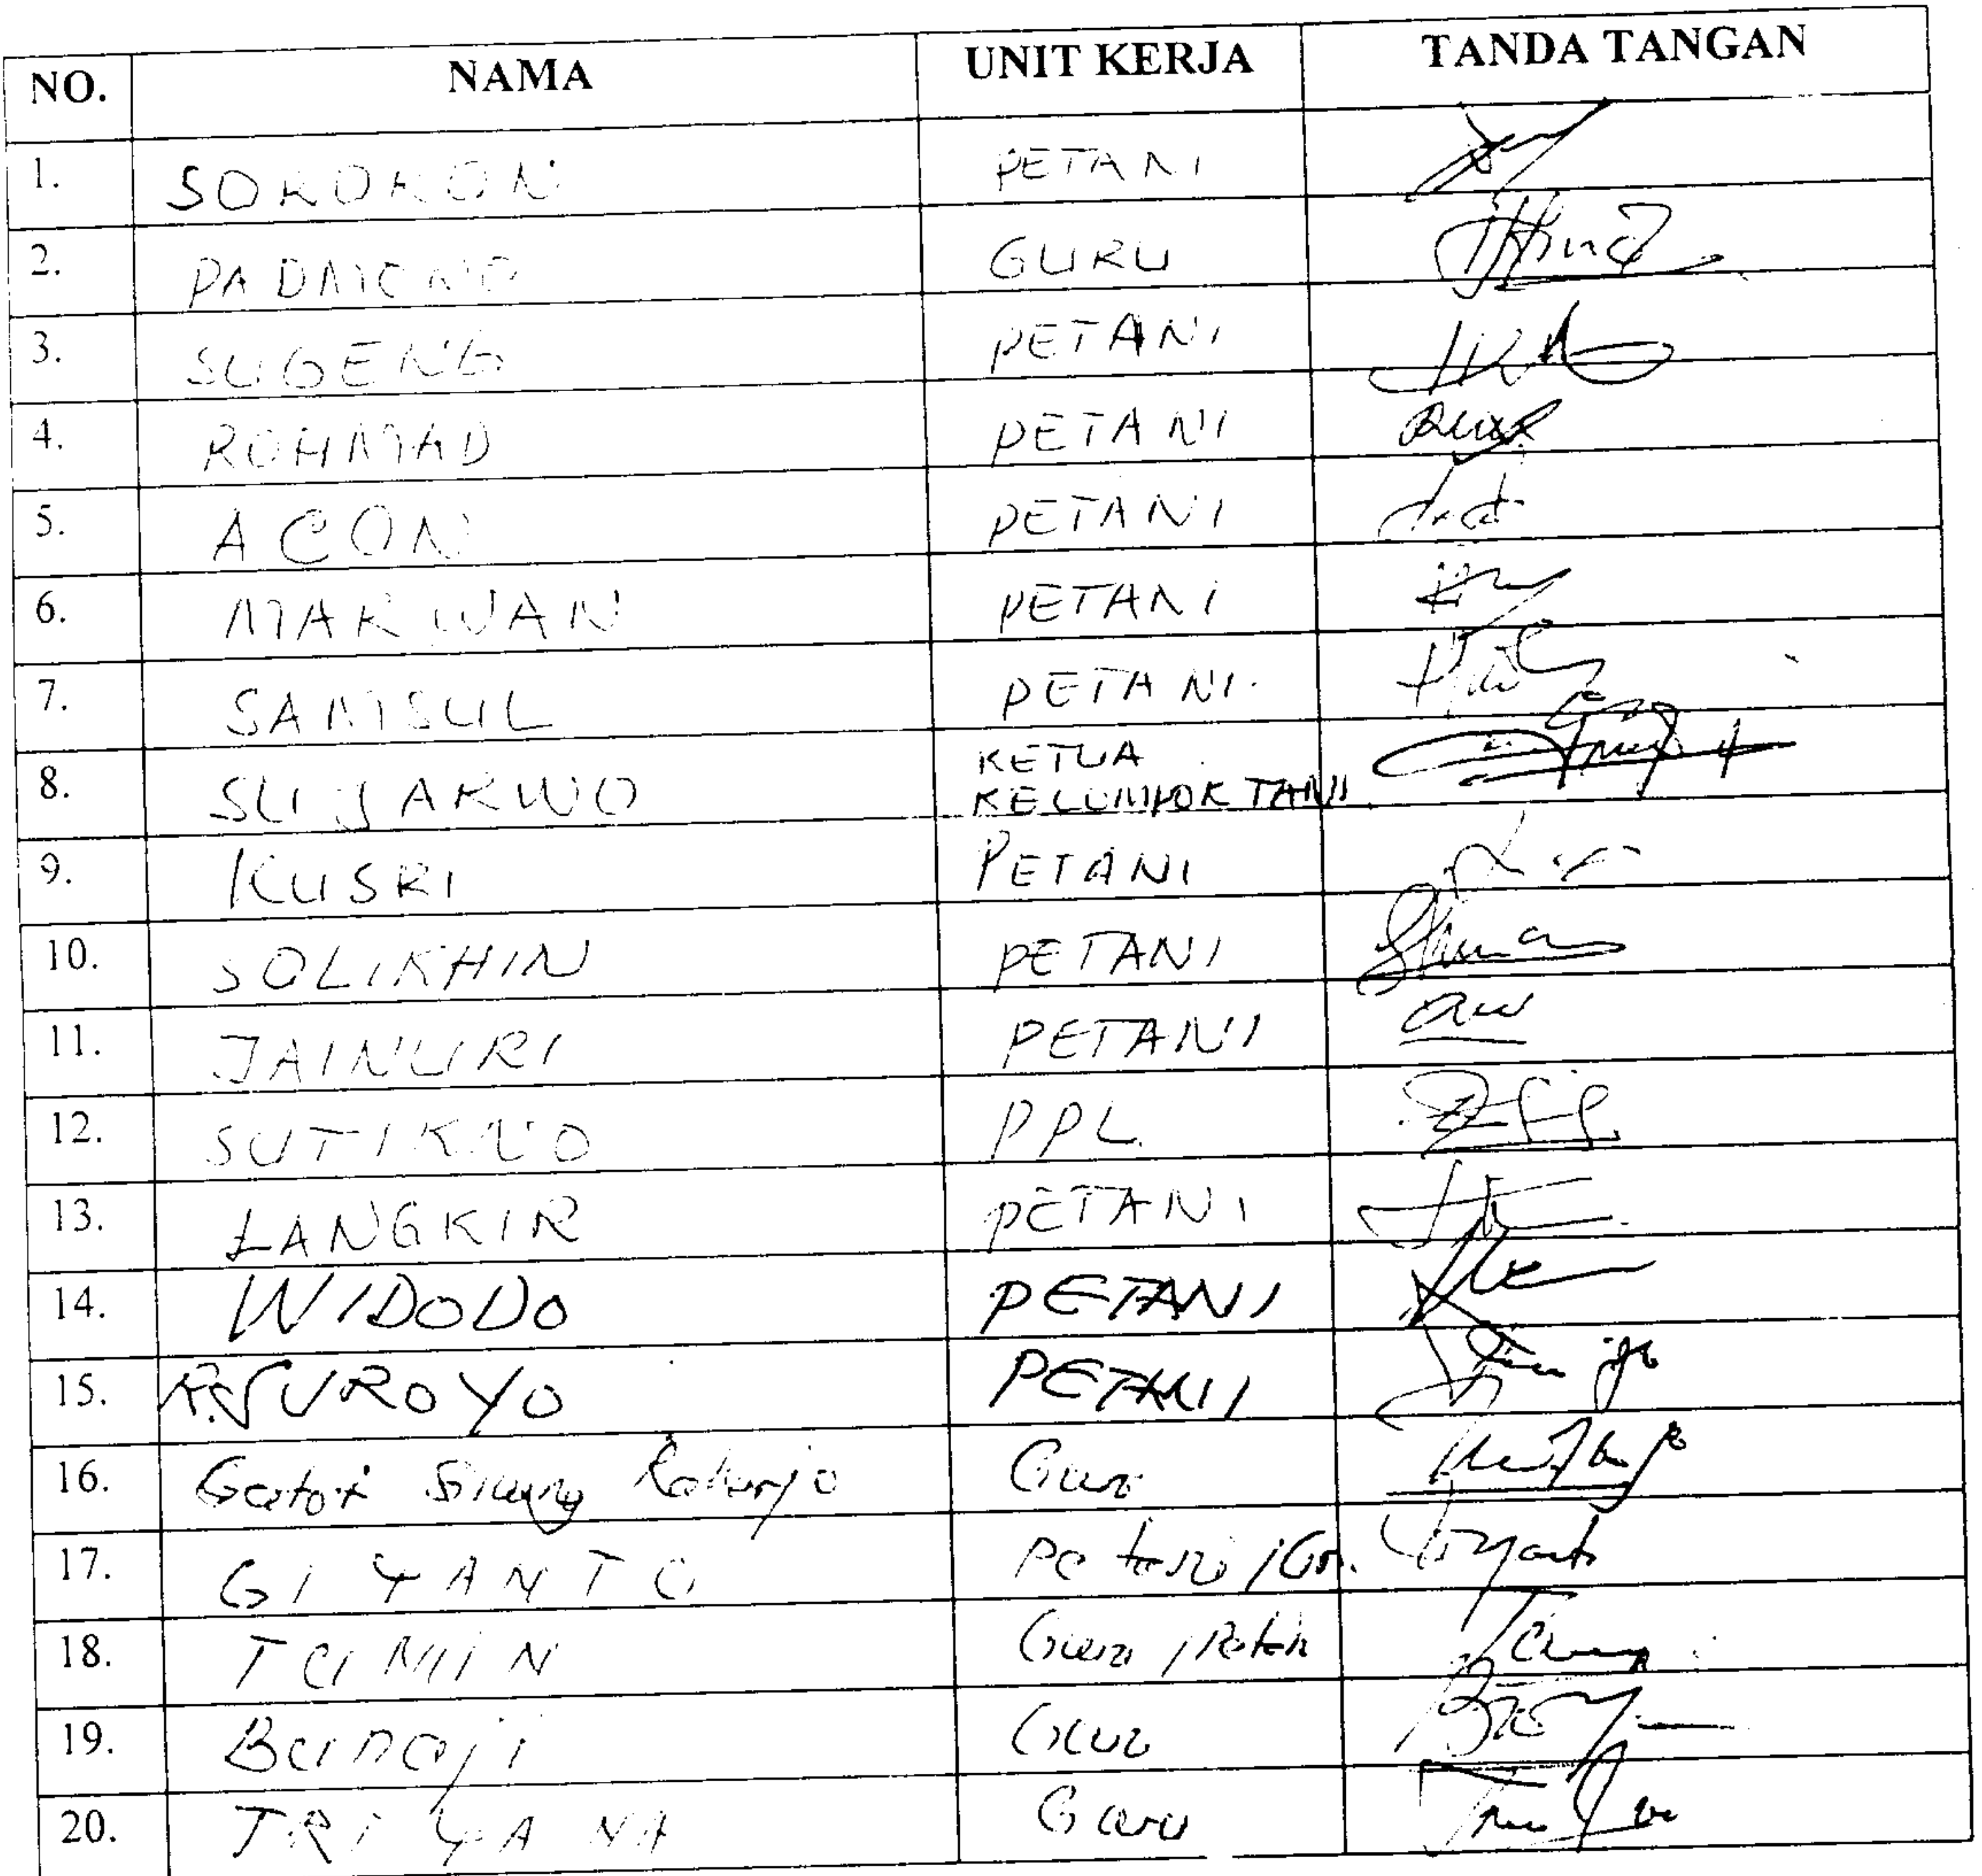 NO. NAMA UNIT KERJA TANDA TANGAN
1. SOROKON PETANI
2. PADMONO GURU
3. SUGENG PETANI
4. ROHMAD PETANI
5. ACON PETANI
6. MARWAN PETANI
7. SAMSUL PETANI.
8. SUJARWO KETUA
KELUMPOK TANI
9. KUSRI PETANI
10. SOLIKHIN PETANI
11. JAINURI PETANI
12. SUTIKNO PPL
13. LANGKIR PETANI
14. WIDODO PETANI
15. R.SUROYO PETANI
16. Gatot Raharjo Guru
17. GIYANTO Petani /Gr.
18. TUMIN Guru /
19. Bunaji Guru
20. TRIYANA Guru